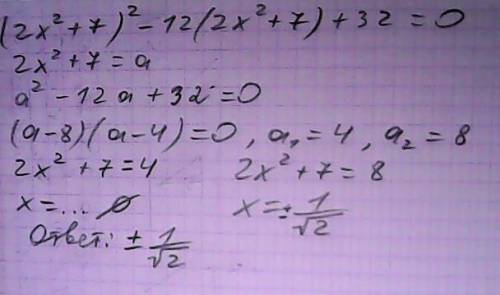 (2x²+7)²-12(2x²+7)+32=0
2x²+7=a
a²-12a+32=0
(a-8)(a-4)=0, a₁=4, a₂=8
2x²+7=4 2x²+7=8
x=... ∅ x=±1/√2
Ответ: ±1/√2